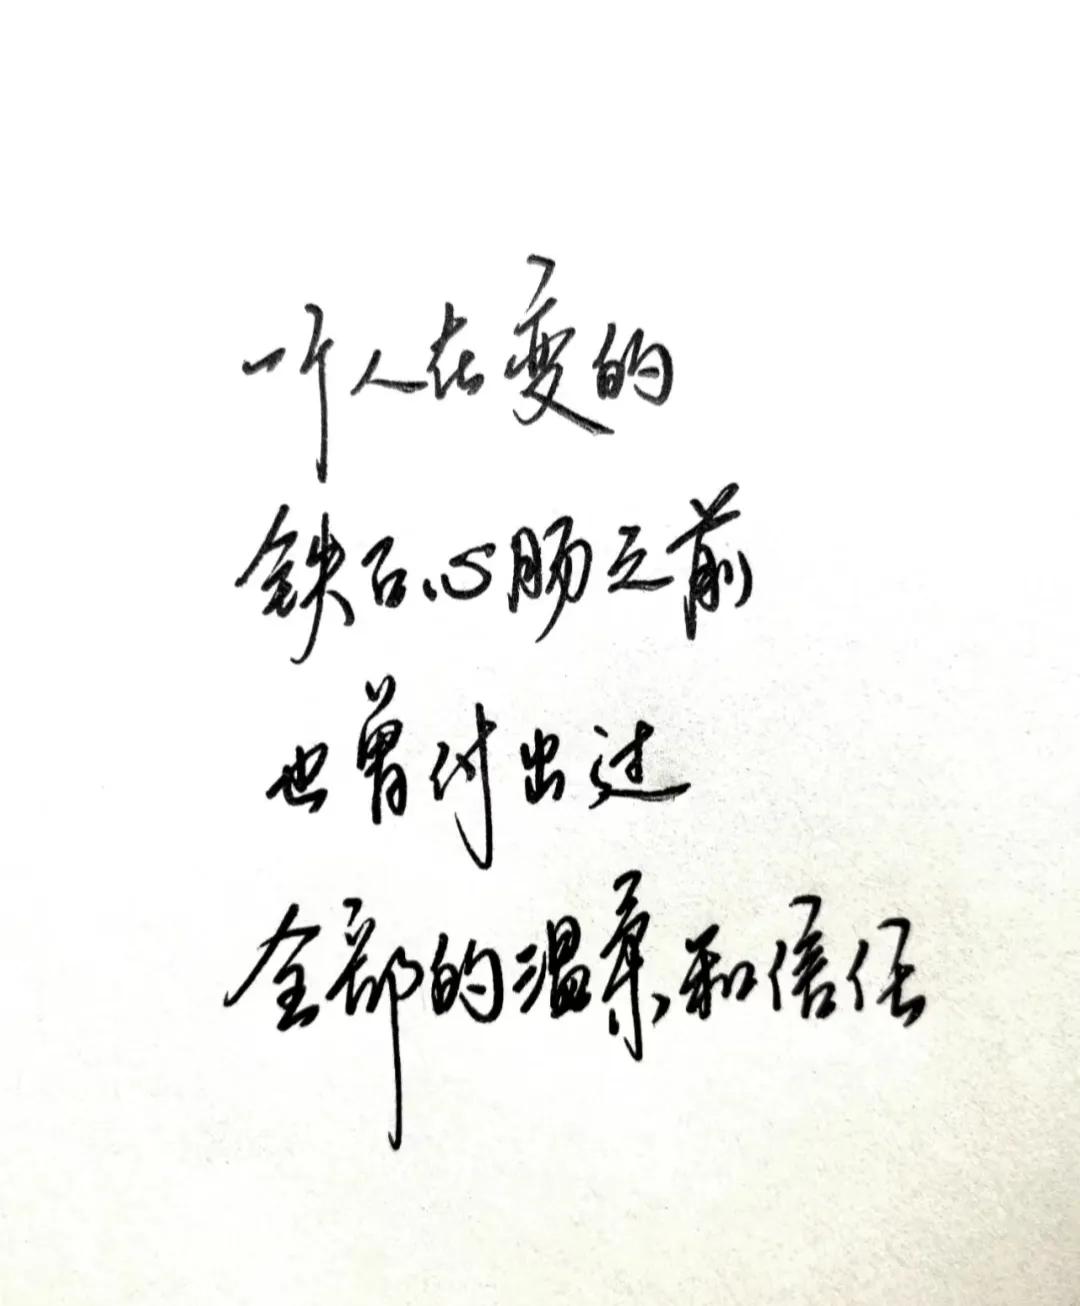 一个人在变的
铁石心肠之前
也曾付出过
全部的温柔和信任